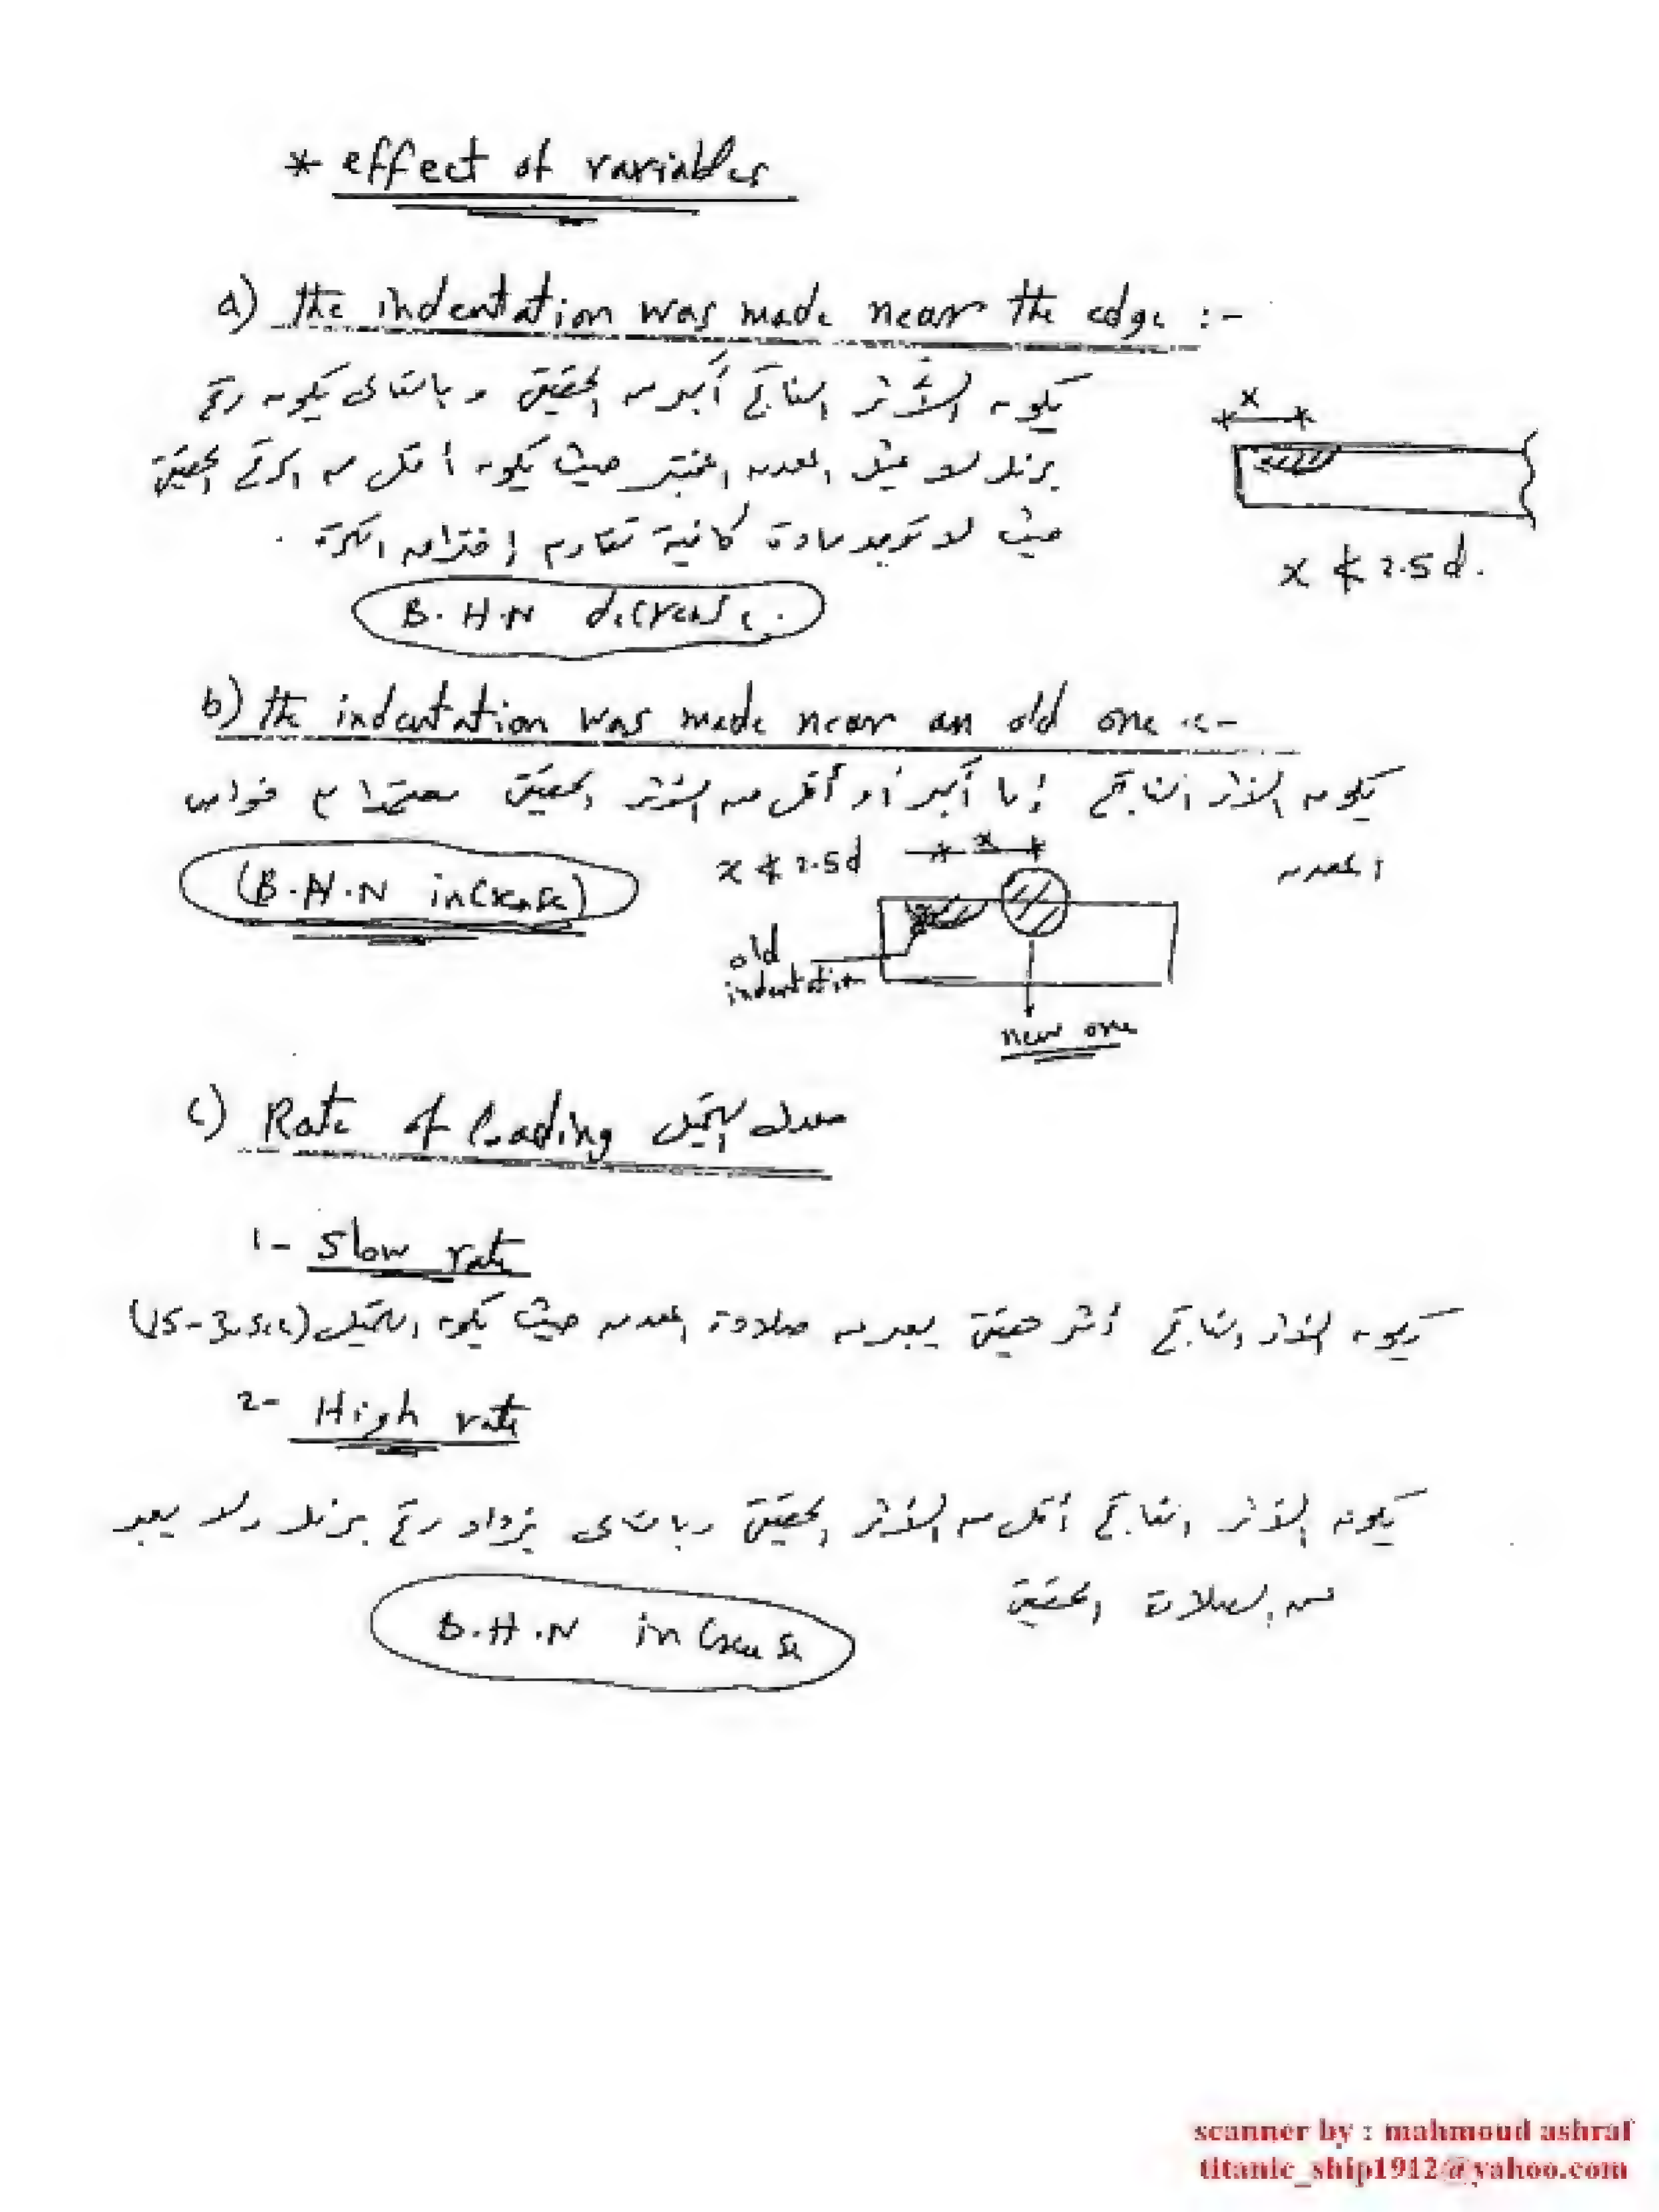 * effect of variables
a) the indentation was made near the edge :-
يكون الأثر الناتج أكبر من الحقيقى وبالتالى يكون رقم
برنل لا يمثل المعدن المختبر حيث يكون أقل من الرقم الحقيقى
حيث لا توجد مادة كافية تقاوم إختراق الكرة .
x
x ≮ 2.5 d.
B.H.N decrease.
b) the indentation was made near an old one :-
يكون الأثر الناتج إما أكبر أو أقل من الأثر الحقيقى معتمدا ع خواص
المعدن
x ≮ 2.5 d
x
(B.H.N increase)
old
indentation
new one
c) Rate of loading معدل التحميل
1- Slow rate
يكون الأثر الناتج أثر حقيقى يعبر عن صلادة المعدن حيث يكون التحميل
2- High rate
يكون الأثر الناتج أقل من الأثر الحقيقى وبالتالى يزداد رقم برنل ولا يعبر
عن الصلادة الحقيقى
B.H.N increase
scanner by : mahmoud ashraf
titanic_ship1912@yahoo.com